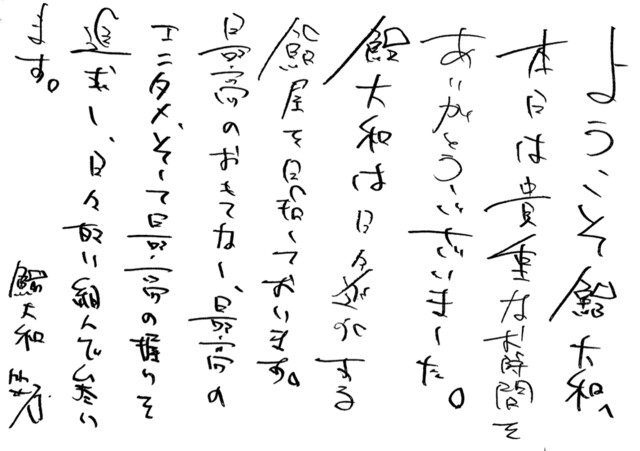 ようこそ鮨大和へ
本日は貴重なお時間を
ありがとうございました。
鮨大和は日々進化する
鮨屋を目指しております。
最高のおもてなし、最高の
エンタメ、そして最高の握りを
追求し、日々取り組んで参り
ます。
鮨大和